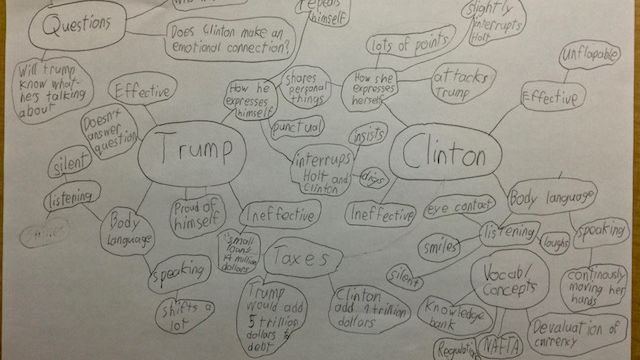 Questions
Does Clinton make an
emotional connection?
Will trump
know what
hes talking
about
repeats
himself
slightly
interrupts
Holt
lots of points
unflapable
Effective
How he
expresses
himself
shares
personal
things
How she
expresses
herself
attacks
Trump
Effective
Doesn't
answer
question
punctual
Trump
insists
Clinton
silent
interrupts
Holt and
Clinton
listening
Proud of
himself
Ineffective
Ineffective
eye contact
Body language
Body
Language
small
loans
14 million
dollars
Taxes
smiles
listening
laughs
speaking
speaking
silent
Vocab/
Concepts
continously
moving her
hands
shifts a
lot
Trump
would add
5 trillion
dollars to
debt
Clinton
add 1 trillion
dollars
Knowledge
bank
Regulation
NAFTA
Devaluation of
currency